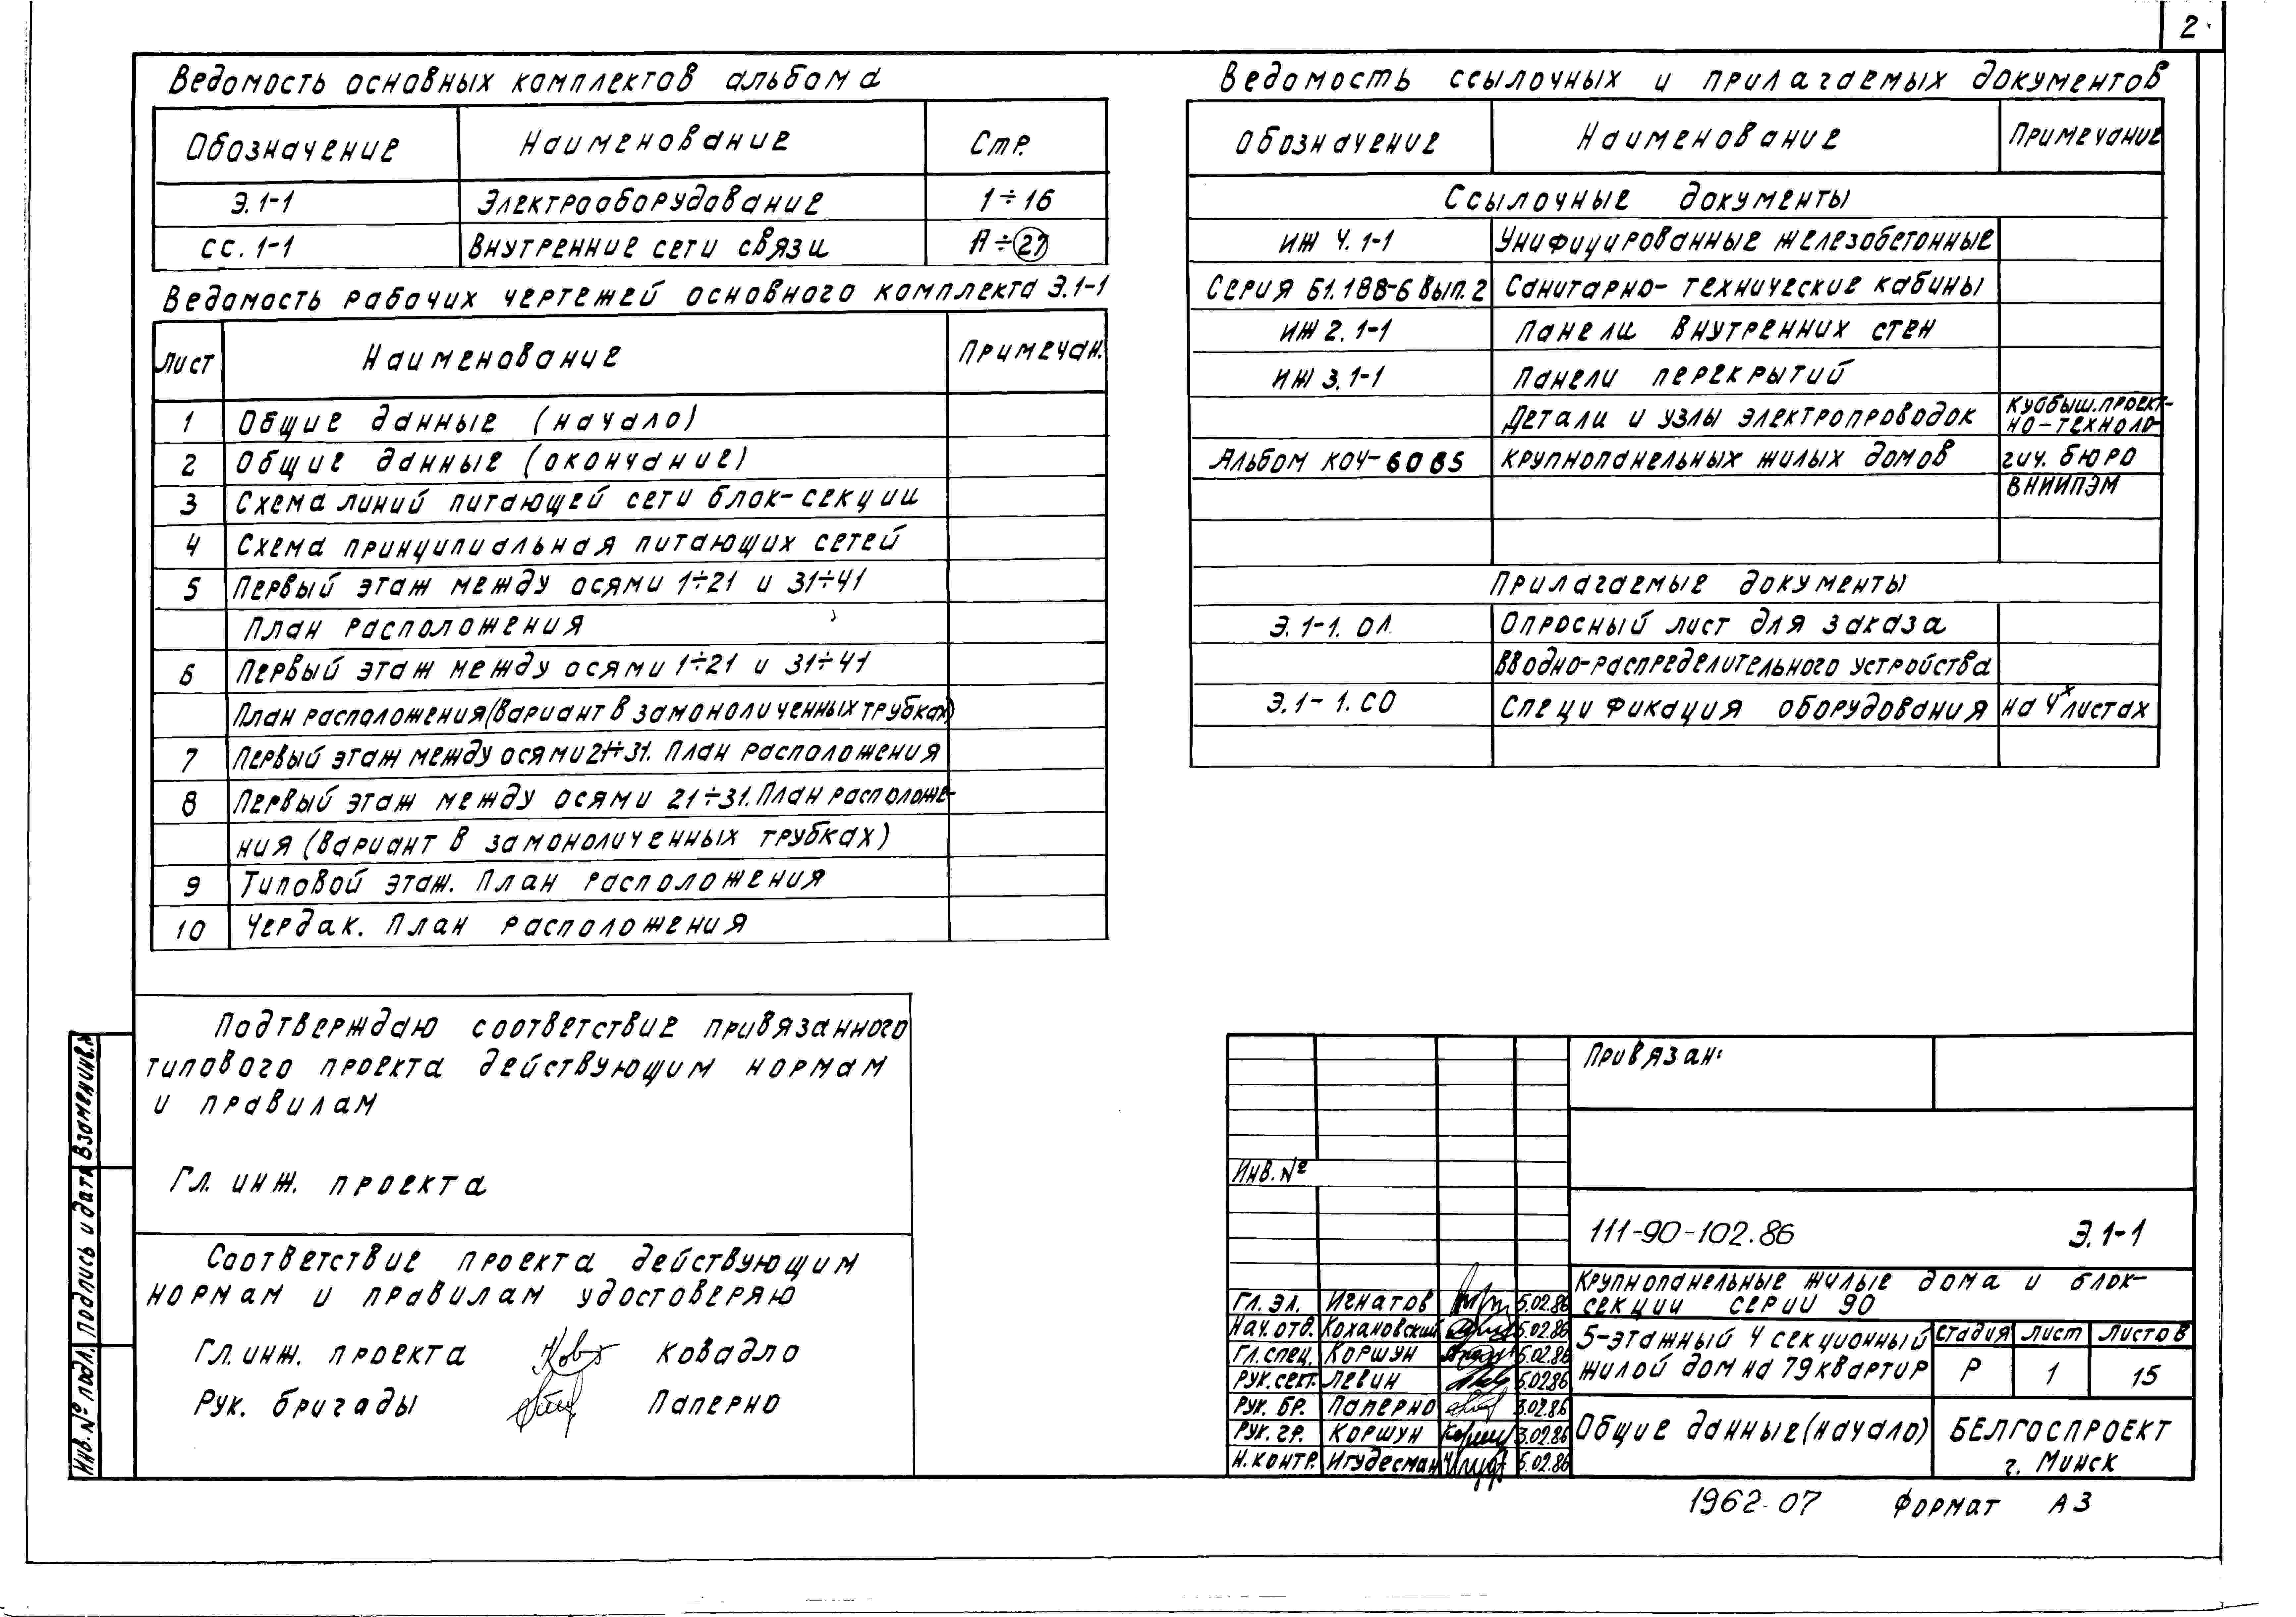 2
Ведомость основных комплектов альбома
Обозначение Наименование Стр.
Э.1-1 Электрооборудование 1÷16
СС.1-1 Внутренние сети связи ÷27
Ведомость рабочих чертежей основного комплекта Э.1-1
Лист Наименование Примечан.
1 Общие данные (начало)
2 Общие данные (окончание)
3 Схема линий питающей сети блок-секции
4 Схема принципиальная питающих сетей
5 Первый этаж между осями 1÷21 и 31÷41
План расположения
6 Первый этаж между осями 1÷21 и 31÷41
План расположения (вариант в замоноличенных трубках)
7 Первый этаж между осями 21÷31. План расположения
8 Первый этаж между осями 21÷31. План расположе-
ния (вариант в замоноличенных трубках)
9 Типовой этаж. План расположения
10 Чердак. План расположения
Ведомость ссылочных и прилагаемых документов
Обозначение Наименование Примечание
Ссылочные документы
ИЖ 4.1-1 Унифицированные железобетонные
Серия Б1.188-6 Вып.2 Санитарно-технические кабины
ИЖ 2.1-1 Панели внутренних стен
ИЖ 3.1-1 Панели перекрытий
Детали и узлы электропроводок Куйбыш.проект-
но-техноло-
Альбом КОЧ-6085 крупнопанельных жилых домов гич. бюро
ВНИИПЭМ
Прилагаемые документы
Э.1-1.ОЛ Опросный лист для заказа
Вводно-распределительного устройства
Э.1-1.СО Спецификация оборудования на 4х листах
Подтверждаю соответствие привязанного
типового проекта действующим нормам
и правилам
Гл. инж. проекта
Соответствие проекта действующим
нормам и правилам удостоверяю
Гл. инж. проекта Ковадло
Рук. бригады Паперно
Инв. № подл. Подпись и дата Взамен инв.№
Привязан:
Инв. №
111-90-102.86 Э.1-1
Крупнопанельные жилые дома и блок-
секции серии 90
Гл. эл. Игнатов 5.02.86
Нач. отд. Кохановский 5.02.86
Гл. спец. Коршун 5.02.86
Рук. сект. Левин 5.02.86
Рук. бр. Паперно 3.02.86
Рук. гр. Коршун 3.02.86
Н. контр. Игудесман 5.02.86
5-этажный 4 секционный
жилой дом на 79 квартир
Стадия Лист Листов
Р 1 15
Общие данные (начало)
БЕЛГОСПРОЕКТ
г. Минск
1962-07 Формат А3